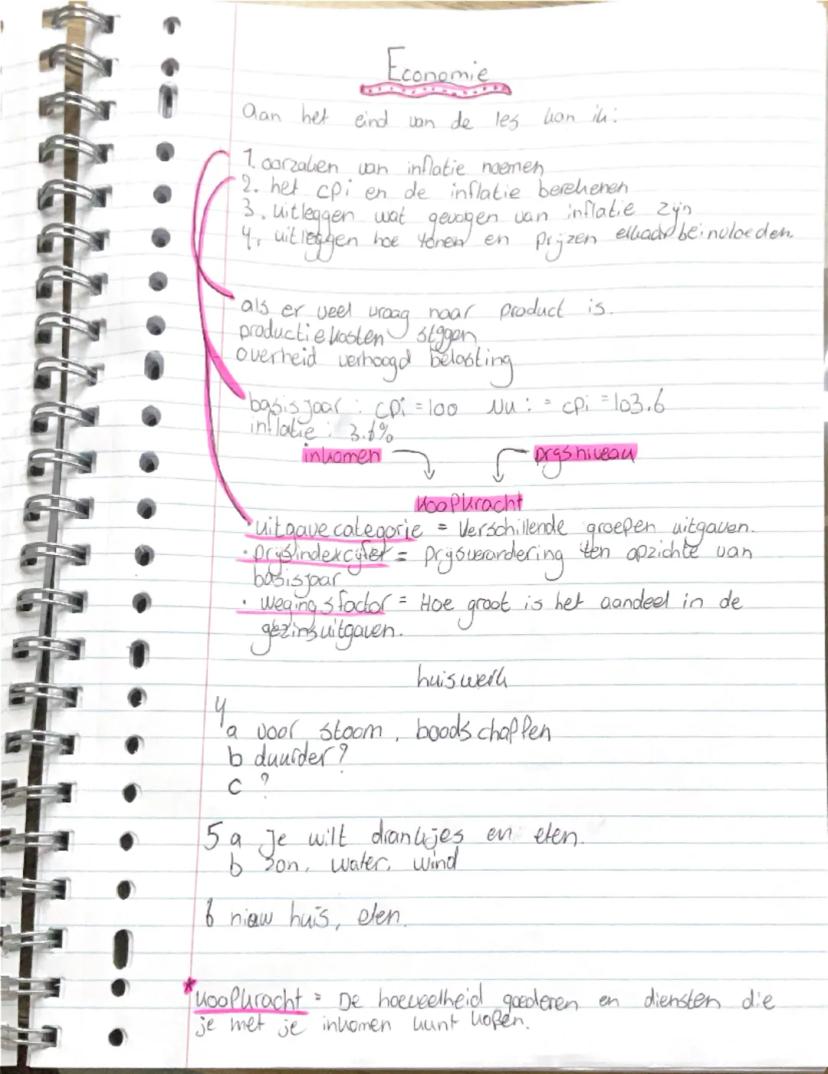 Economie
aan het eind van de les kan ik:
1. oorzaken van inflatie noemen
2. het cpi en de inflatie berekenen
3. uitleggen wat gevogen van inflatie zijn
4. uitleggen hoe lonen en prijzen elkaar beïnvloeden.
als er veel vraag naar product is.
productiekosten stijgen
overheid verhoogd belasting
basisjaar : cpi = 100 Nu : = cpi = 103.6
inflatie : 3.6%
inkomen prijsniveau
koopkracht
· uitgave categorie = Verschillende groepen uitgaven.
· prijsindexcijfer = Prijsverandering ten opzichte van
basisjaar
· wegingsfactor = Hoe groot is het aandeel in de
gezinsuitgaven.
huiswerk
4
a voor stoom, boodschappen
b duurder?
c ?
5 a je wilt drankjes en eten.
b zon, water, wind
6 niew huis, eten.
* koopkracht = De hoeveelheid goederen en diensten die
je met je inkomen kunt kopen.